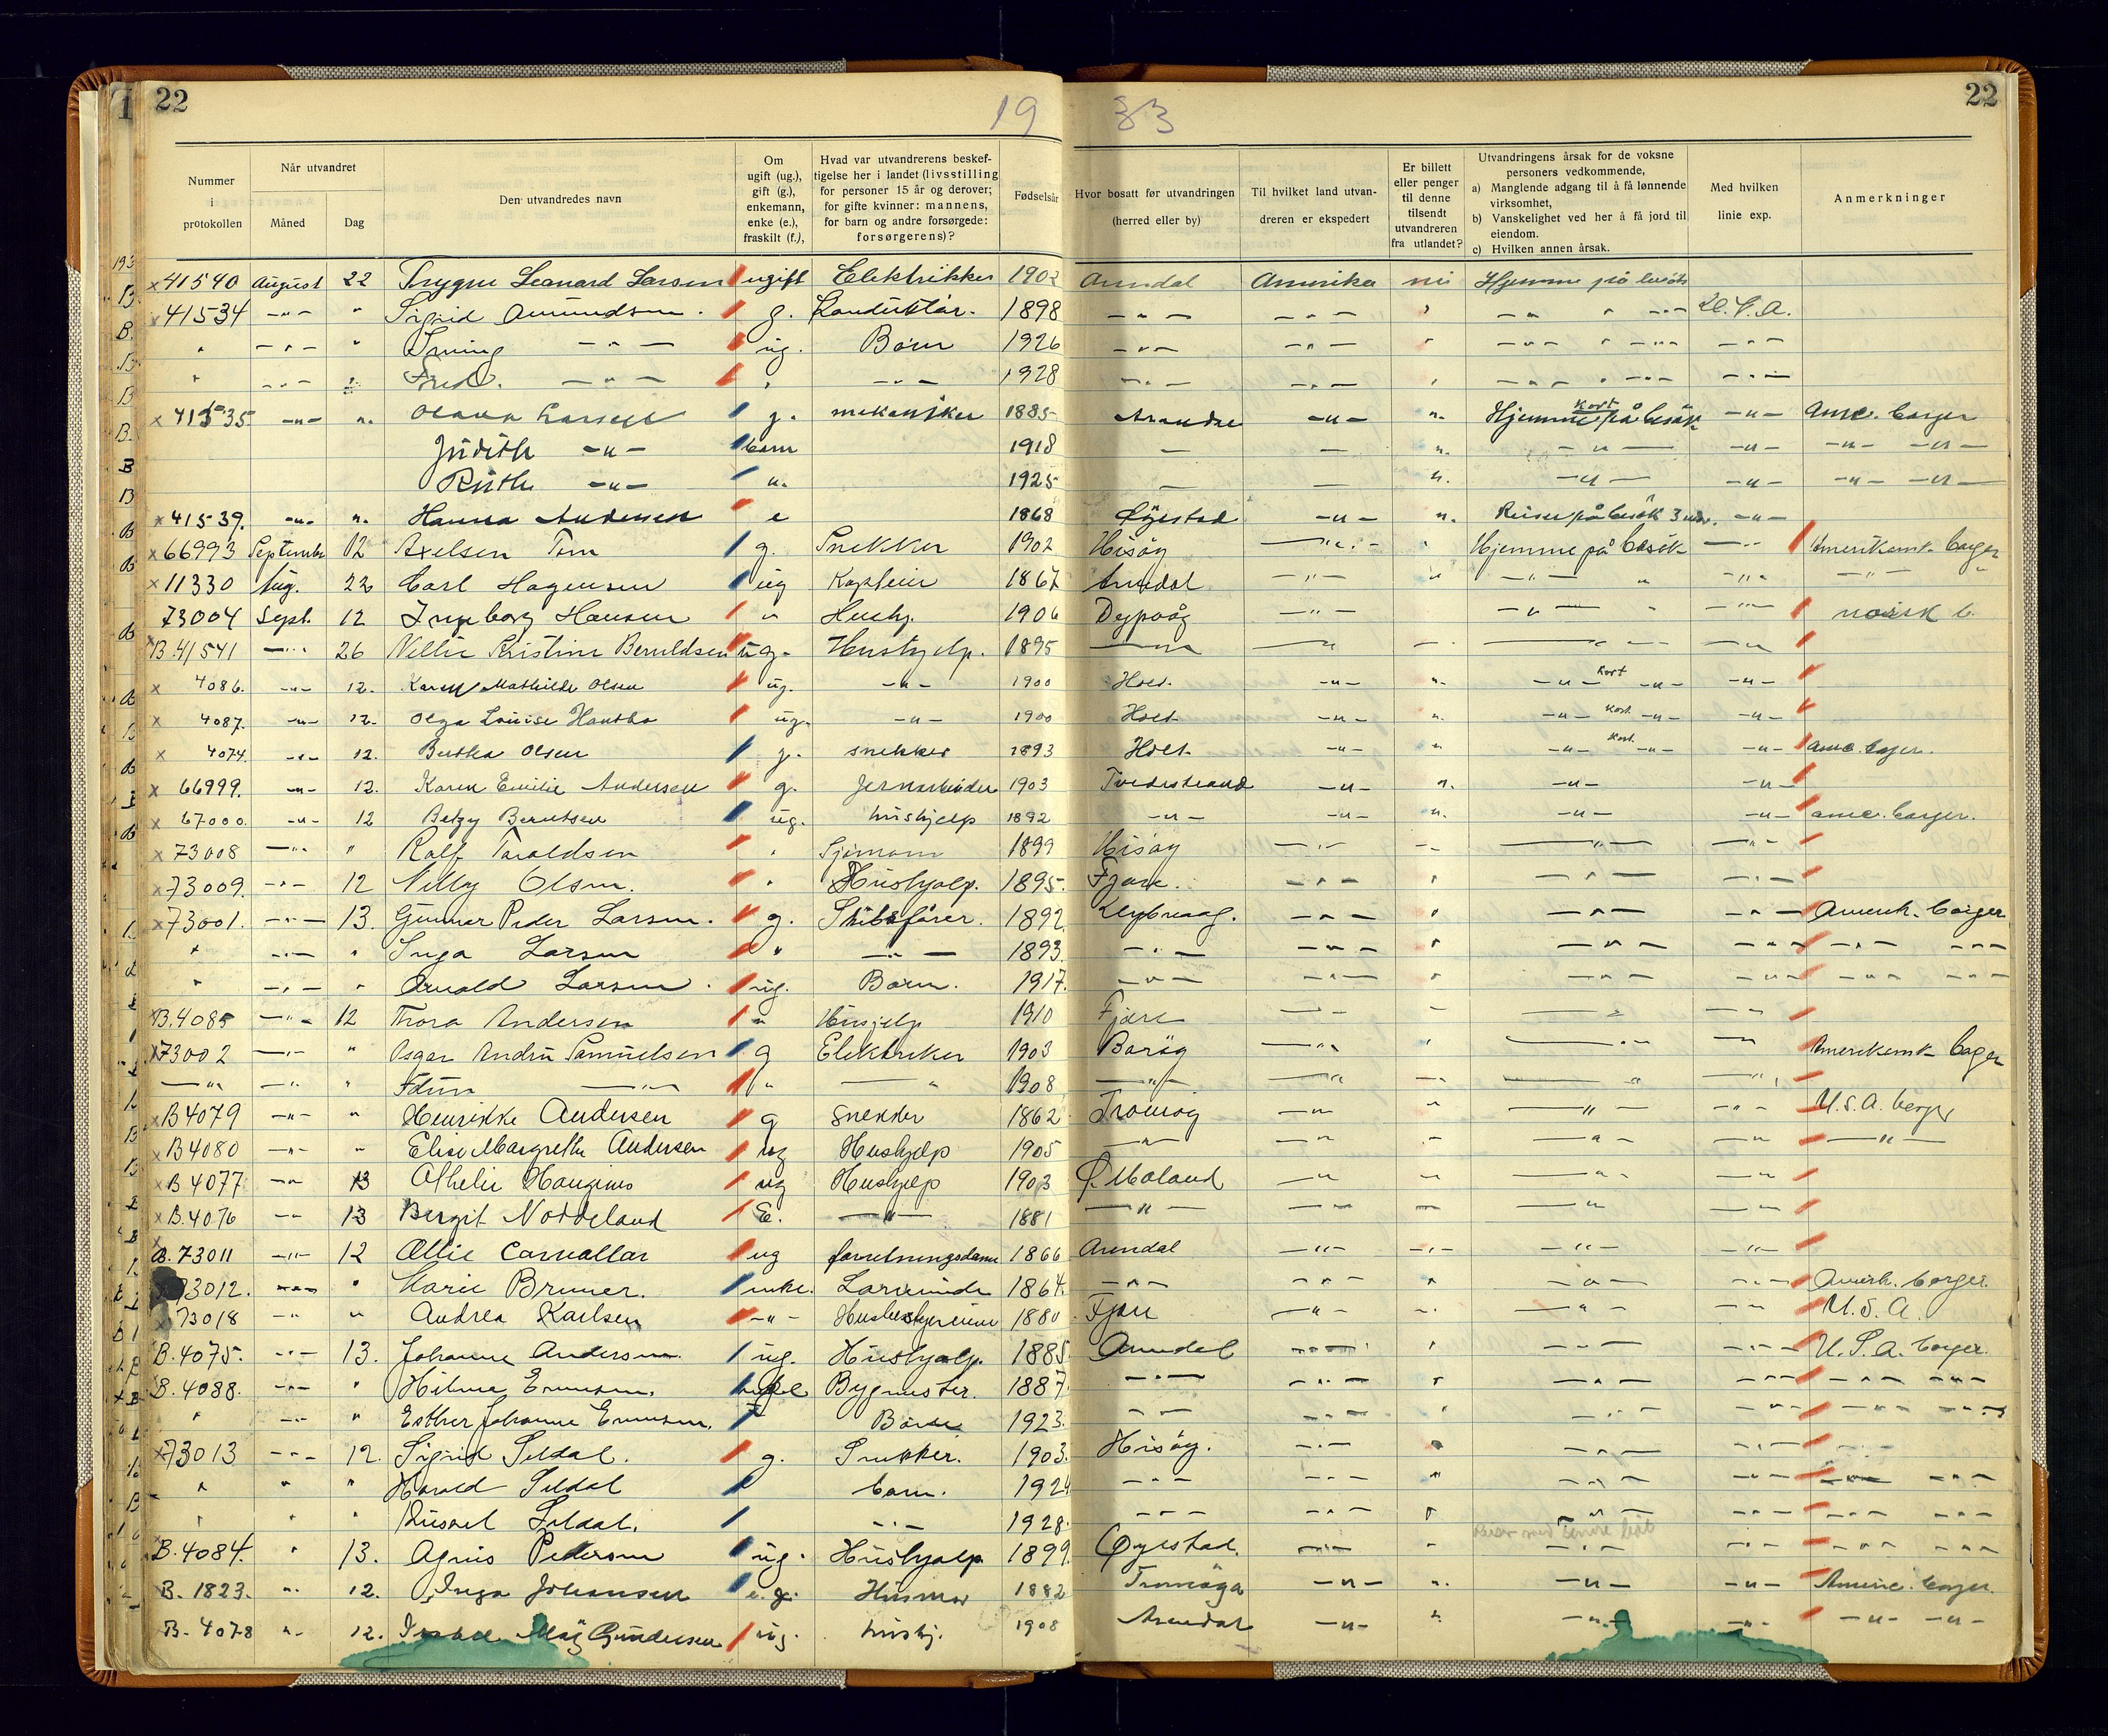 22
19 33
22
Nummer i protokollen
Når utvandret
Måned
Dag
Den utvandredes navn
Om ugift (ug.), gift (g.), enkemann, enke (e.), fraskilt (f.),
Hvad var utvandrerens beskeftigelse her i landet (livsstilling for personer 15 år og derover; for gifte kvinner: mannens, for barn og andre forsørgede: forsørgerens)?
Fødselsår
Hvor bosatt før utvandringen (herred eller by)
Til hvilket land utvandreren er ekspedert
Er billett eller penger til denne tilsendt utvandreren fra utlandet?
Utvandringens årsak for de voksne personers vedkommende,
a) Manglende adgang til å få lønnende virksomhet,
b) Vanskelighet ved her å få jord til eiendom.
c) Hvilken annen årsak.
Med hvilken linie exp.
Anmerkninger
x 41540 August 22 Trygve Leonard Larsen ugift Elektrikker 1902 Arendal Amerika nei Hjemme på besøk
x 41534 -"- " Sigrid Amundsen. g. Konduktør. 1898 -"- -"- " -"- " -"-
" -"- " Irving -"- ug. Barn 1926 -"- -"- " -"- " -"- -"-
" -"- " Fred. -"- " -"- 1928 -"- -"- " -"- " -"- -"-
x 41535 -"- ". Olava Larsen g. mekaniker 1885 -"- ". Hjemme kort på besøk -"- Ame. borger
Judith -"- barn 1918 - - ". -"- -"- -"- -"-
Ruth -"- ". 1925 - - ". -"- -"- -"- -"-
x 41539. -"- ". Hanna Andersen e 1868 Øyestad -"- ". Reise på besøk 3 mdr. -"-
x 66993 September 12 Axelsen Tom g. Snekker 1902 Hisøy -"- " Hjemme på besøk -"- Amerikansk borger
x 11330 Aug. 22 Carl Hagensen ug Kaptein 1867 Arendal -"- " -"- " -"- -"- "
73004 Sept. 12 Ingeborg Hansen " Hushj. 1906 Dypvåg -"- " -"- " -"- norsk b.
B.41541 -"- 26 Nellie Kristine Beruldsen ug. Hushjelp. 1895 -"- -"- -"- -"- -"-
x 4086. -"- 12. Karen Mathilde Olsen ug. -"- 1900 Holt. -"- ". -"- kort -"- -"-
x 4087. -"- 12. Olga Louise 1900 Holt -"- ". -"- kort -"- -"-
x 4074. -"- 12. Bertha Olsen g. snekker 1893 Holt. -"- " -"- kort -"- -"- ame. borger.
x 66999. -"- 12. Karen Emilie Andersen g. Jernarbeider 1903 Tvedestrand -"- ". -"- -"-
x 67000. -"- 12 Betzy Berntsen ug. hushjelp 1892 -"- -"- ". -"- -"- ame. borger.
x 73008 -"- " Rolf Taraldsen " Sjømann 1899 Hisøy -"- -"- -"- -"-
x 73009. -"- 12 Nelly Olsen. " Hushjelp. 1895. Fjære. -"- " -"- -"-
x 73001. -"- 13. Gunnar Peder Larsen. g. Skibsfører. 1892 -"- " -"- -"- Amerik. borger
" -"- " Inga Larsen " -"- 1893. -"- -"- " -"- -"- -"- -"-
" -"- " Arnold Larsen. ug. Barn. 1917. -"- -"- " -"- -"- -"- -"-
B.4085 -"- 12 Thora Andersen " Husjelp 1910 Fjære -"- - -"- -"-
x 73002 -"- " Osgar Andru Samuelsen g Elektriker 1903 Barøy -"- " -"- -"- Amerikansk borger
-"- -"- " -"- " -"- 1908 -"- -"- -"- -"- -"-
x B4079 -"- " Henrikke Andersen g snekker 1862 Tromøy -"- " -"- -"- U.S.A. borger
x B4080 -"- " Elise Margrethe Andersen ug Hushjelp 1905 -"- -"- -"- -"- -"- -"-
x B 4077 -"- 13 Hushjelp 1903 Ø Moland -"- " -"- -"-
x B.4076 -"- 13 Bergit Noddeland E. -"- 1881 -"- -"- -"- -"- -"-
B. 73011 -"- 12 Ollie Carvallar ug forretningsdame 1866 Arendal -"- -"- -"- -"-
73012. -"- " Marie Bruner. enke. 1864. -"- -"- " -"- -"- Amerik. borger.
x 73018 -"- " Andrea Karlsen -"- Husbestyrerinne 1880 Fjære -"- -"- -"- -"- U.S.A.
B.4075. -"- 13. Johanne Andersen. ug. Hushjelp. 1885. Arendal -"- " -"- -"- U.S.A. borger.
B.4088. -"- " Bygmester. 1887. -"- -"- " -"- -"- -"- -"-
" -"- " Esther Johanne Barn 1923. -"- -"- " -"- -"- -"- -"-
x 73013 -"- 12. Sigrid Seldal. g. Snekker. 1903. Hisøy. -"- " -"- -"-
" " " Harald Seldal barn. 1924 -"- -"- " -"- -"- -"- -"-
" " " Seldal. -"- 1928. -"- -"- " -"- -"- -"- -"-
B.4084. " 13. Agnes Pedersen ug. Hushjelp 1899. Øyestad. -"- " -"- -"- -"- -"-
B. 1823. ". 12. Inga Johansen Husmor 1882 Tromøya -"- ". -"- -"- Americ. borger.
B. 4078 ". 12. May Gundersen ug. hushj. 1908 Arendal -"- ". -"- -"- -"- -"-